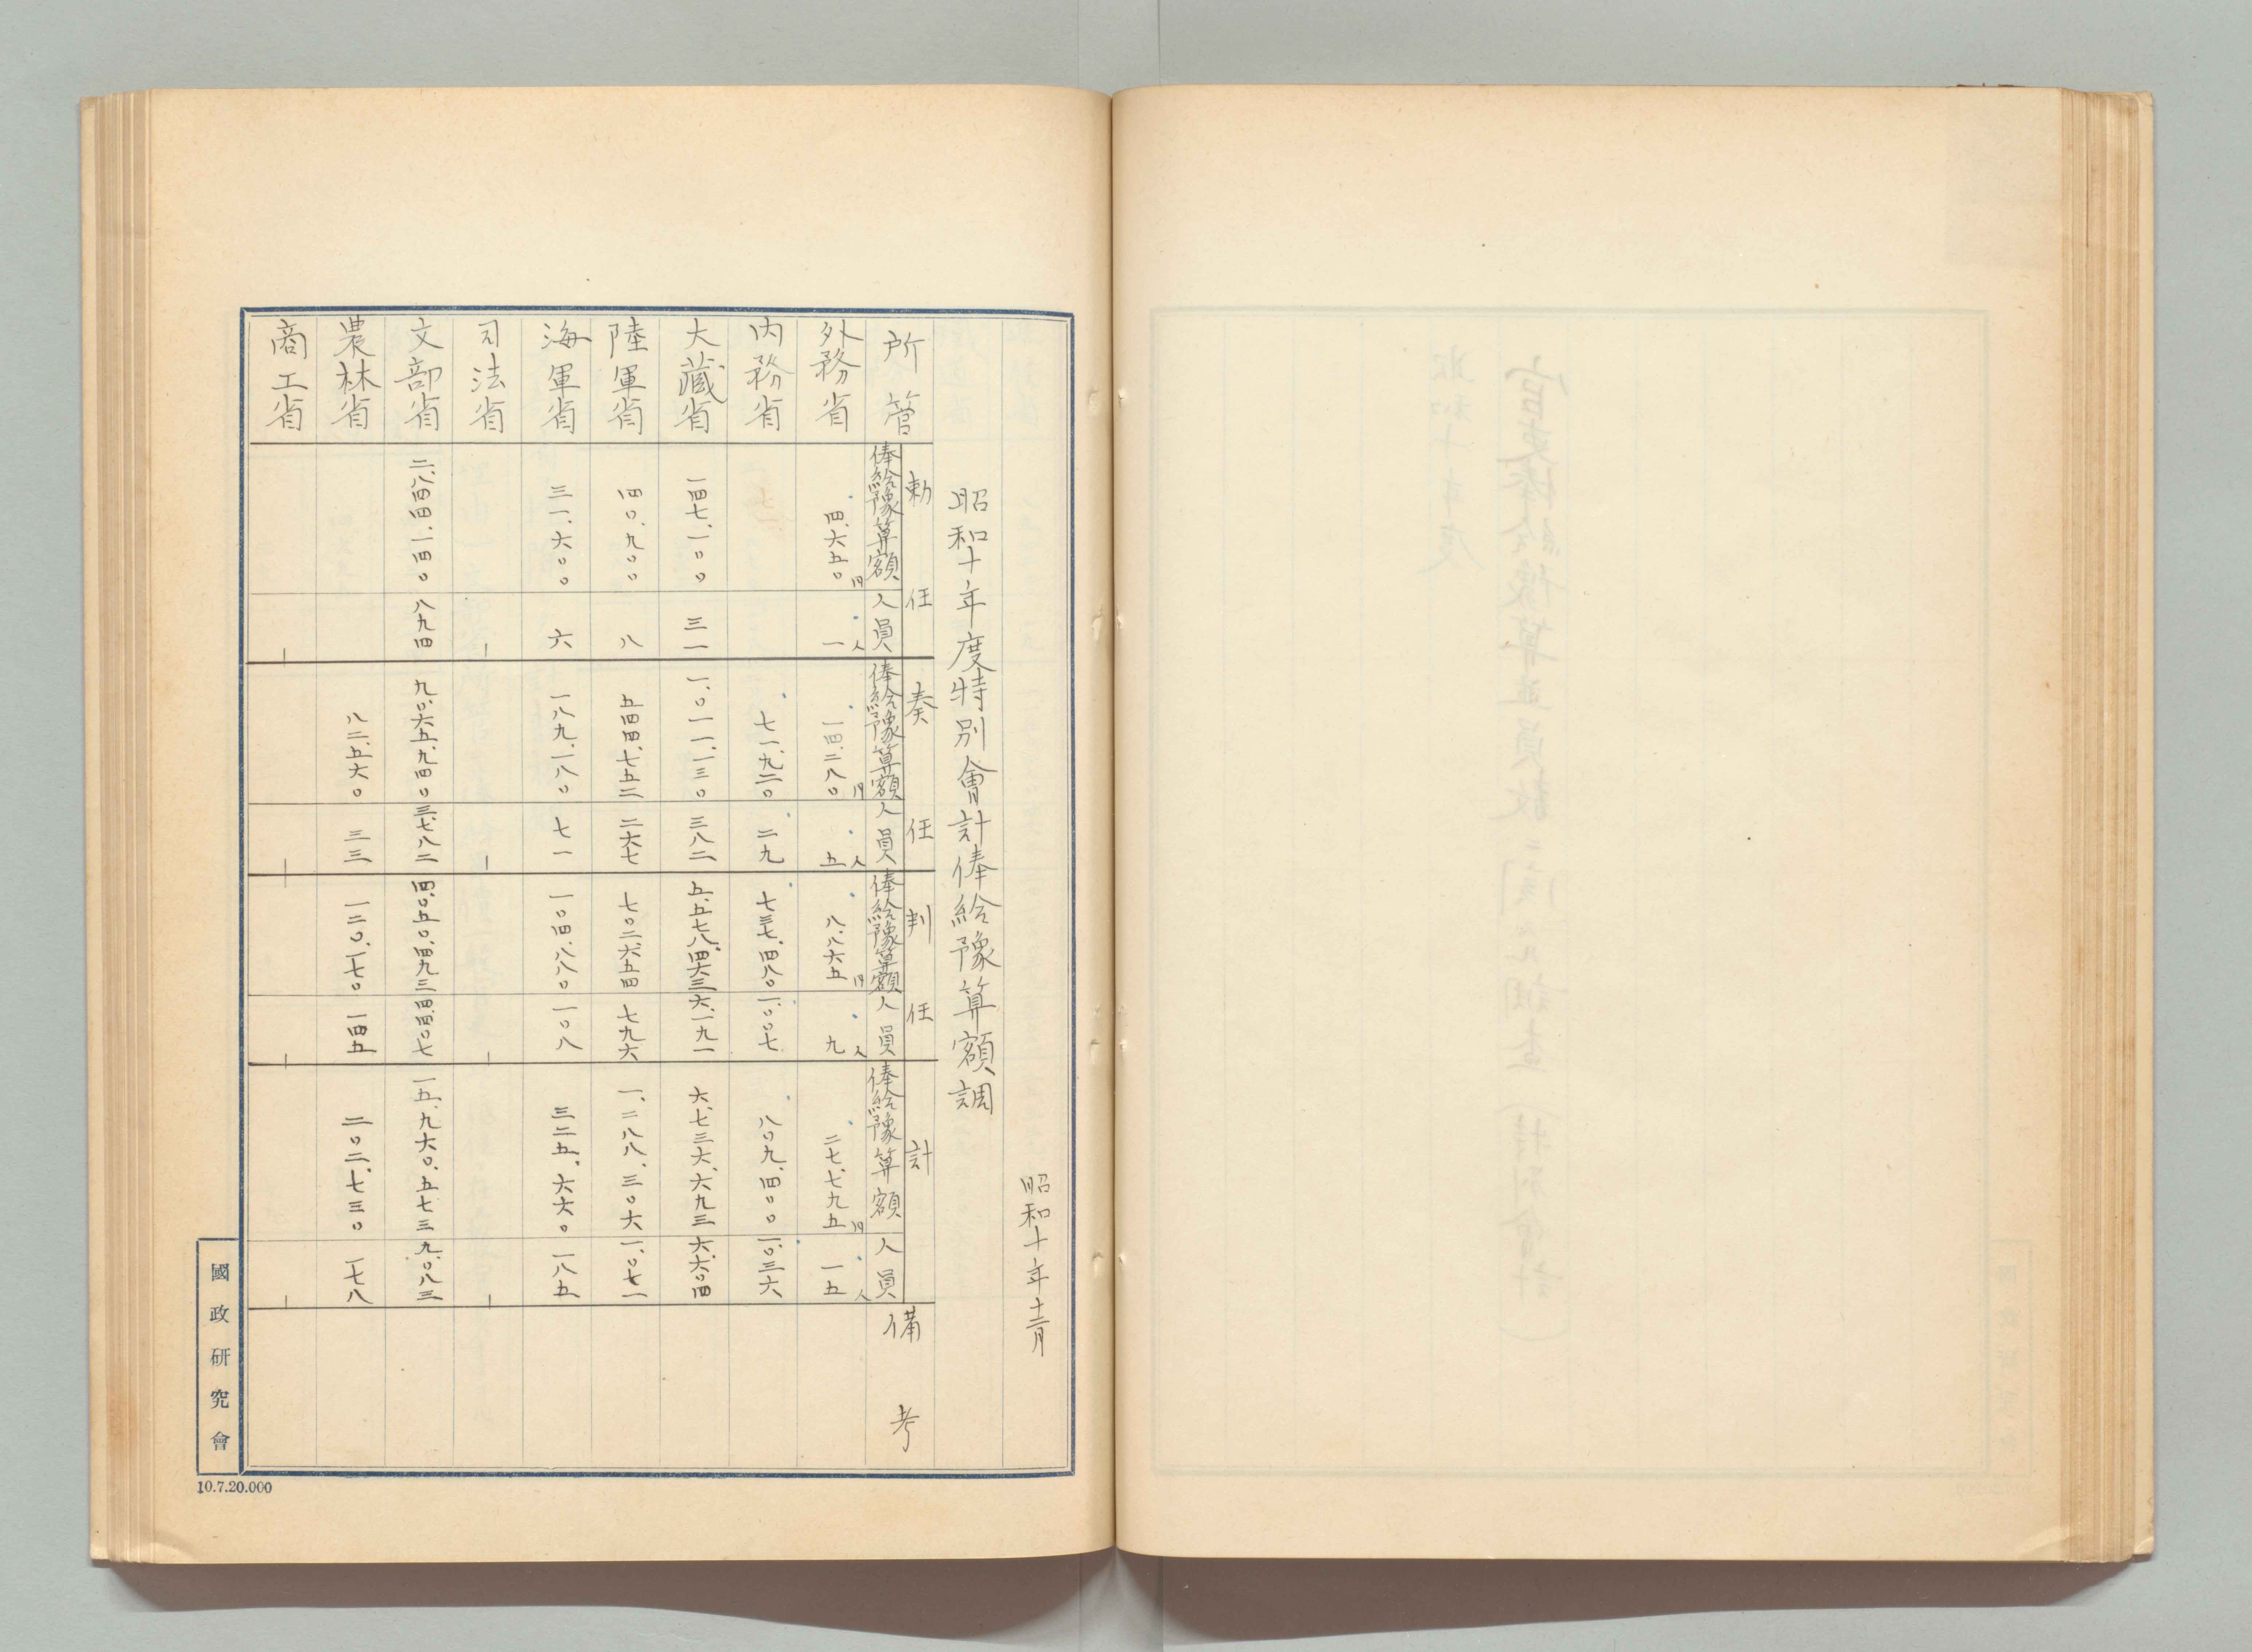 昭和十年十二月
昭和十年度特別會計俸給豫算額調
所管 勅任 奏任 判任 計 備考
俸給豫算額 人員 俸給豫算額 人員 俸給豫算額 人員 俸給豫算額 人員
外務省 四、六五〇円 一人 一四、二八〇円 五人 八、八六五円 九人 二七、七九五円 一五人
内務省 七一、九二〇 二九 七三七、四八〇 一、〇〇七 八〇九、四〇〇 一、〇三六
大藏省 一四七、一〇〇 三一 一、〇一一、一三〇 三八二 五、五七八、四六三 六、一九一 六、七三六、六九三 六、六〇四
陸軍省 四〇、九〇〇 八 五四四、七五二 二六七 七〇二、六五四 七九六 一、二八八、三〇六 一、〇七一
海軍省 三一、六〇〇 六 一八九、一八〇 七一 一〇四、八八〇 一〇八 三二五、六六〇 一八五
司法省 ー ー ー ー
文部省 二、八四四、一四〇 八九四 九、〇六五、九四〇 三、七八二 四、〇五〇、四九三 四、四〇七 一五、九六〇、五七三 九、〇八三
農林省 八二、五六〇 三三 一二〇、一七〇 一四五 二〇二、七三〇 一七八
商工省 ー ー ー ー
國政研究會
10.7.20.000